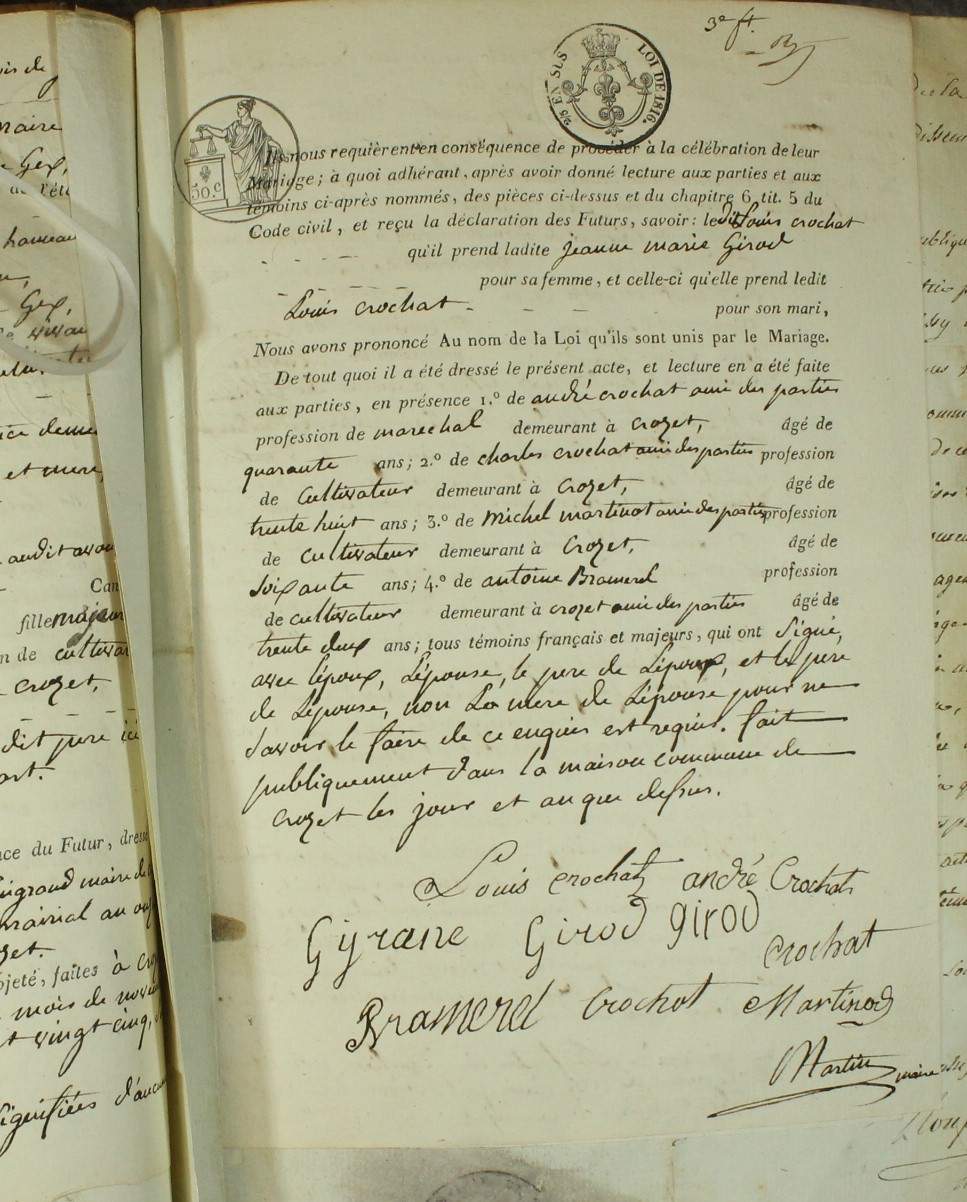 3e ft.
25 EN SUS LOI DE 1816.
50 C
Ils nous requièrent en conséquence de procéder à la célébration de leur
Mariage; à quoi adhérant, après avoir donné lecture aux parties et aux
témoins ci-après nommés, des pièces ci-dessus et du chapitre 6, tit. 5 du
Code civil, et reçu la déclaration des Futurs, savoir: ledit Louis crochat
qu'il prend ladite jeanne marie Girod
pour sa femme, et celle-ci qu'elle prend ledit
Louis crochat - - - pour son mari,
Nous avons prononcé Au nom de la Loi qu'ils sont unis par le Mariage.
De tout quoi il a été dressé le présent acte, et lecture en a été faite
aux parties, en présence 1.º de andré crochat ami des parties
profession de marechal demeurant à crozet, âgé de
quarante ans; 2.º de charles crochat ami des parties profession
de Cultivateur demeurant à Crozet, âgé de
trente huit ans; 3.º de Michel martinot ami des parties profession
de cultivateur demeurant à Crozet, âgé de
soixante ans; 4.º de antoine Bramerel profession
de cultivateur demeurant à crozet ami des parties âgé de
trente deux ans; tous témoins français et majeurs, qui ont Signé,
avec lépoux, Lépouse, le pere de Lépoux, et le pere
de Lépouse, non La mere de Lépouse pour ne
savoir le faire de ce enquies est requise. fait
publiquement dans la maison commune de
crozet les jour et an que dessus.
Louis crochat andré Crochat
Gyrane Girod girod
crochat
Bramerel Crochot Martinod
Martin maire
Gex,
hameau
Gex,
et mere
audit
Can
fille majeur
de cultivat
crozet,
dit pere ici
ce du Futur, dres
maire de
faites à
mois de
vingt cinq,
signifiées d'aucu